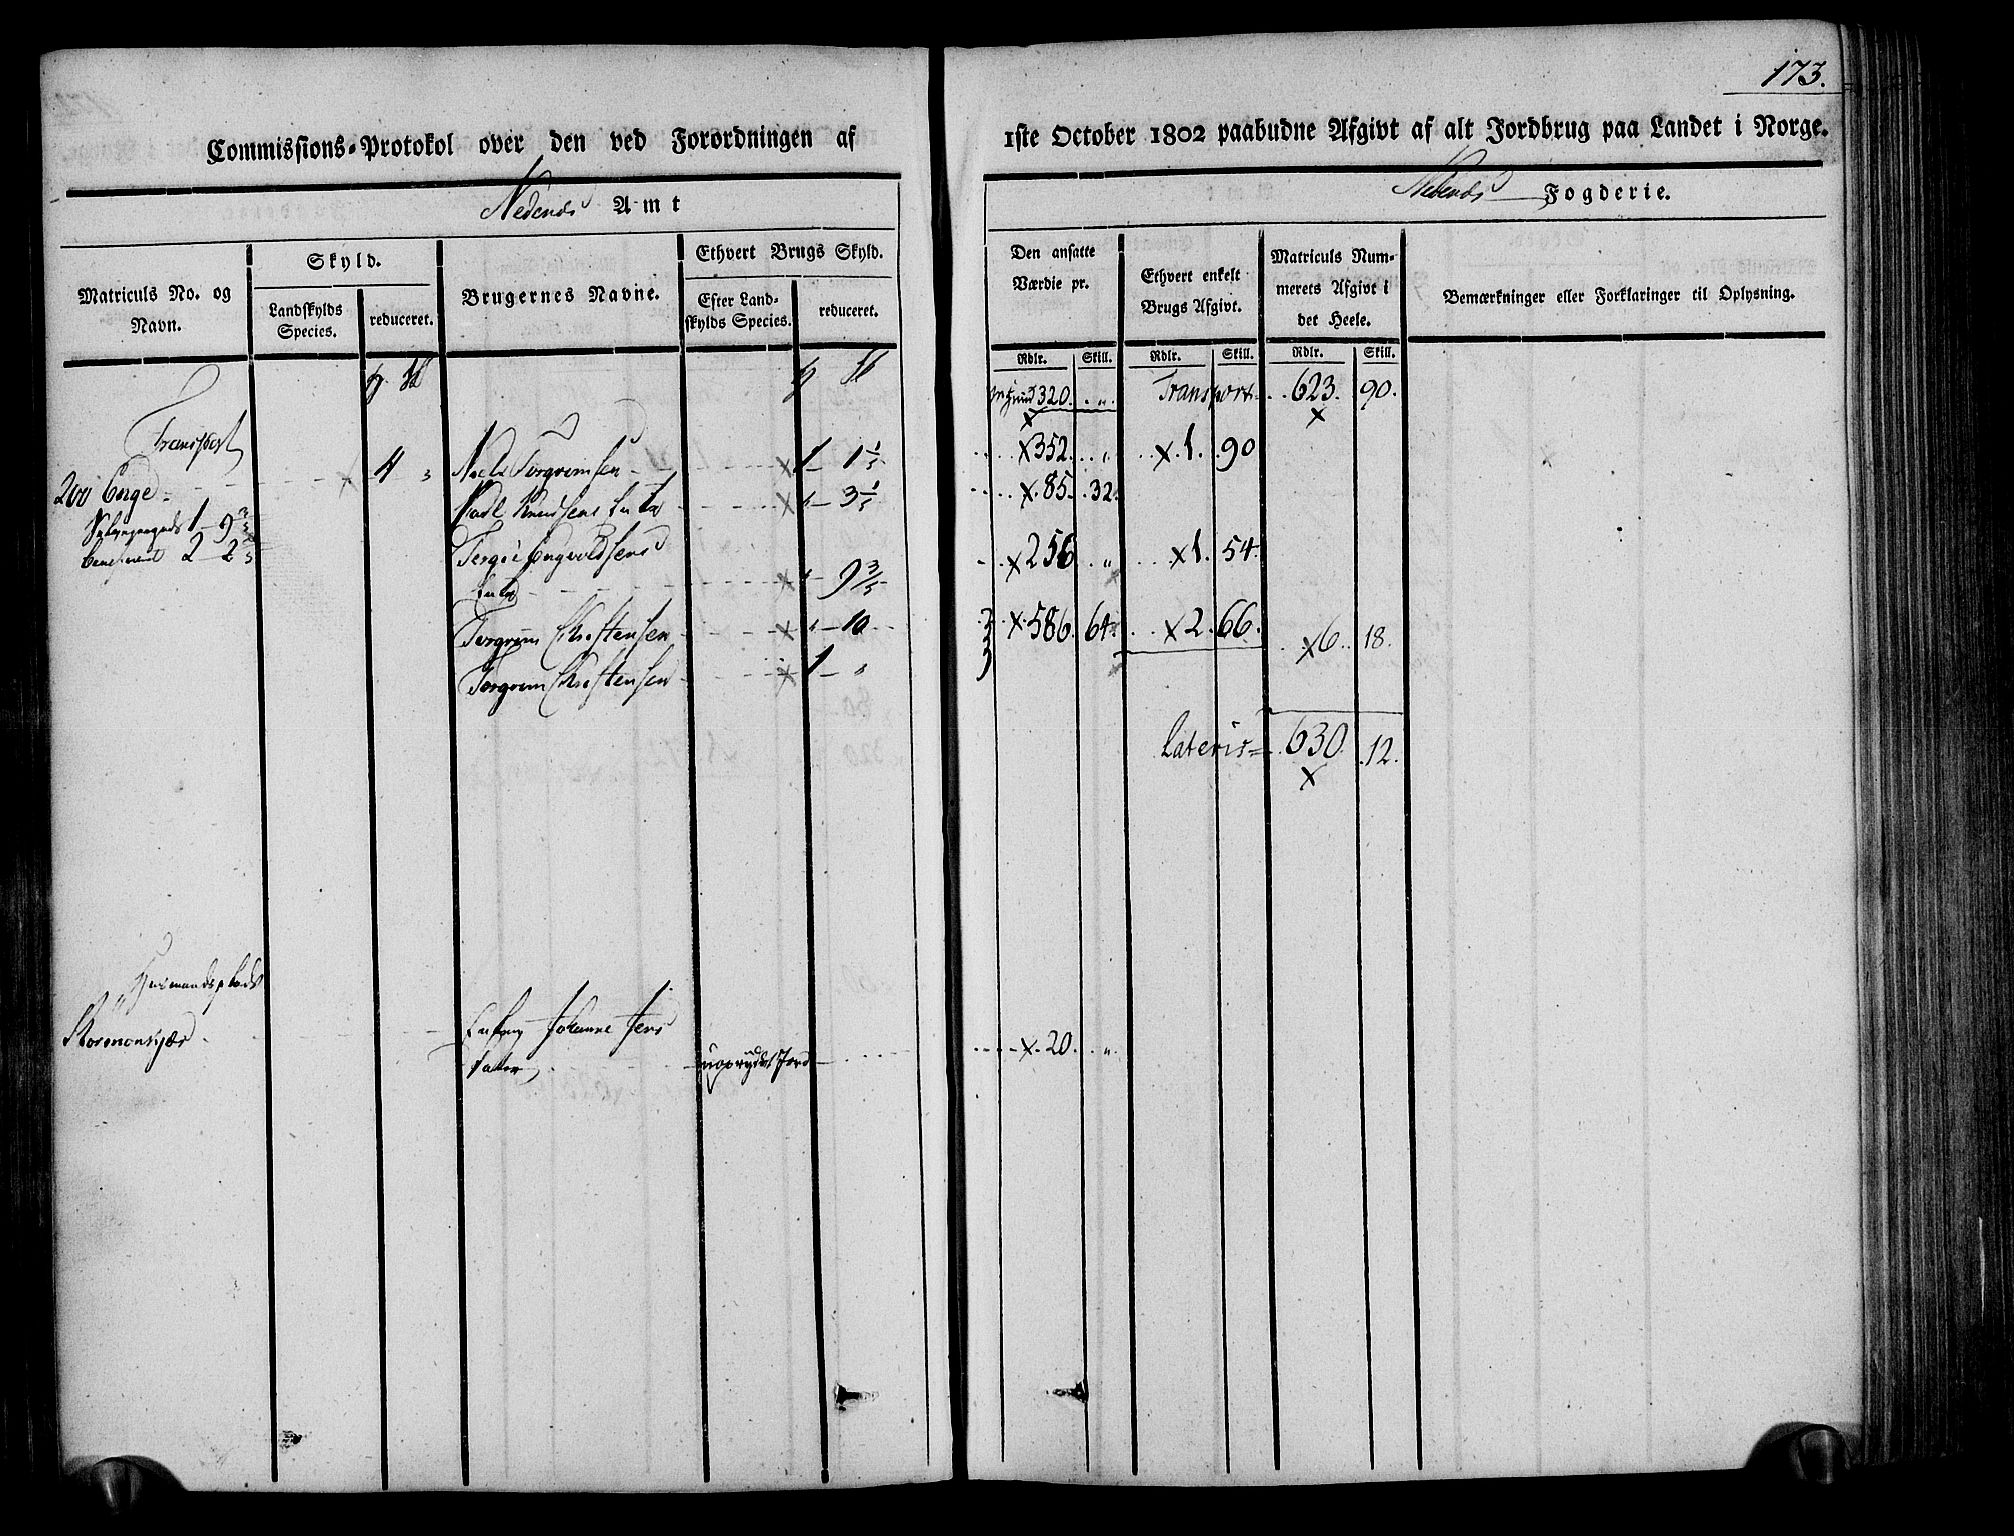 173.
Commissions-Protokol over den ved Forordningen af 1ste October 1802 paabudne Afgivt af alt Jordbrug paa Landet i Norge.
Nedenæs Amt
Nedenæs Fogderie.
Matriculs No. og Navn.
Skyld.
Landskylds Species.
reduceret.
Brugernes Navne.
Ethvert Brugs Skyld.
Efter Landskylds Species.
reduceret.
Den ansatte Værdie pr.
Ethvert enkelt Brugs Afgivt.
Matriculs Nummerets Afgivt i det Heele.
Bemærkninger eller Forklaringer til Oplysning.
Rdlr. Skill. Rdlr. Skill. Rdlr. Skill.
320. „ Transport 623. 90.
Transport
200 Enge 4 „ Niels Torgrimsen 1 – 1 1/5 352. „ 1. 90
1 – 9 3/5 Knudsens Enke „ – 3 1/5 85. 32.
beneficeret 2 – 2 2/5 Terge Engvoldsens
Enke „ – 9 3/5 256 „ 1. 54.
Torgrim Christensen „ – 10 586. 64. 2. 66. 6. 18.
Torgrim Christensen 1 – „
Lateris 630. 12.
Huusmandsplads
Enken Johanne Jens
datter uoprydet Jord 20. „